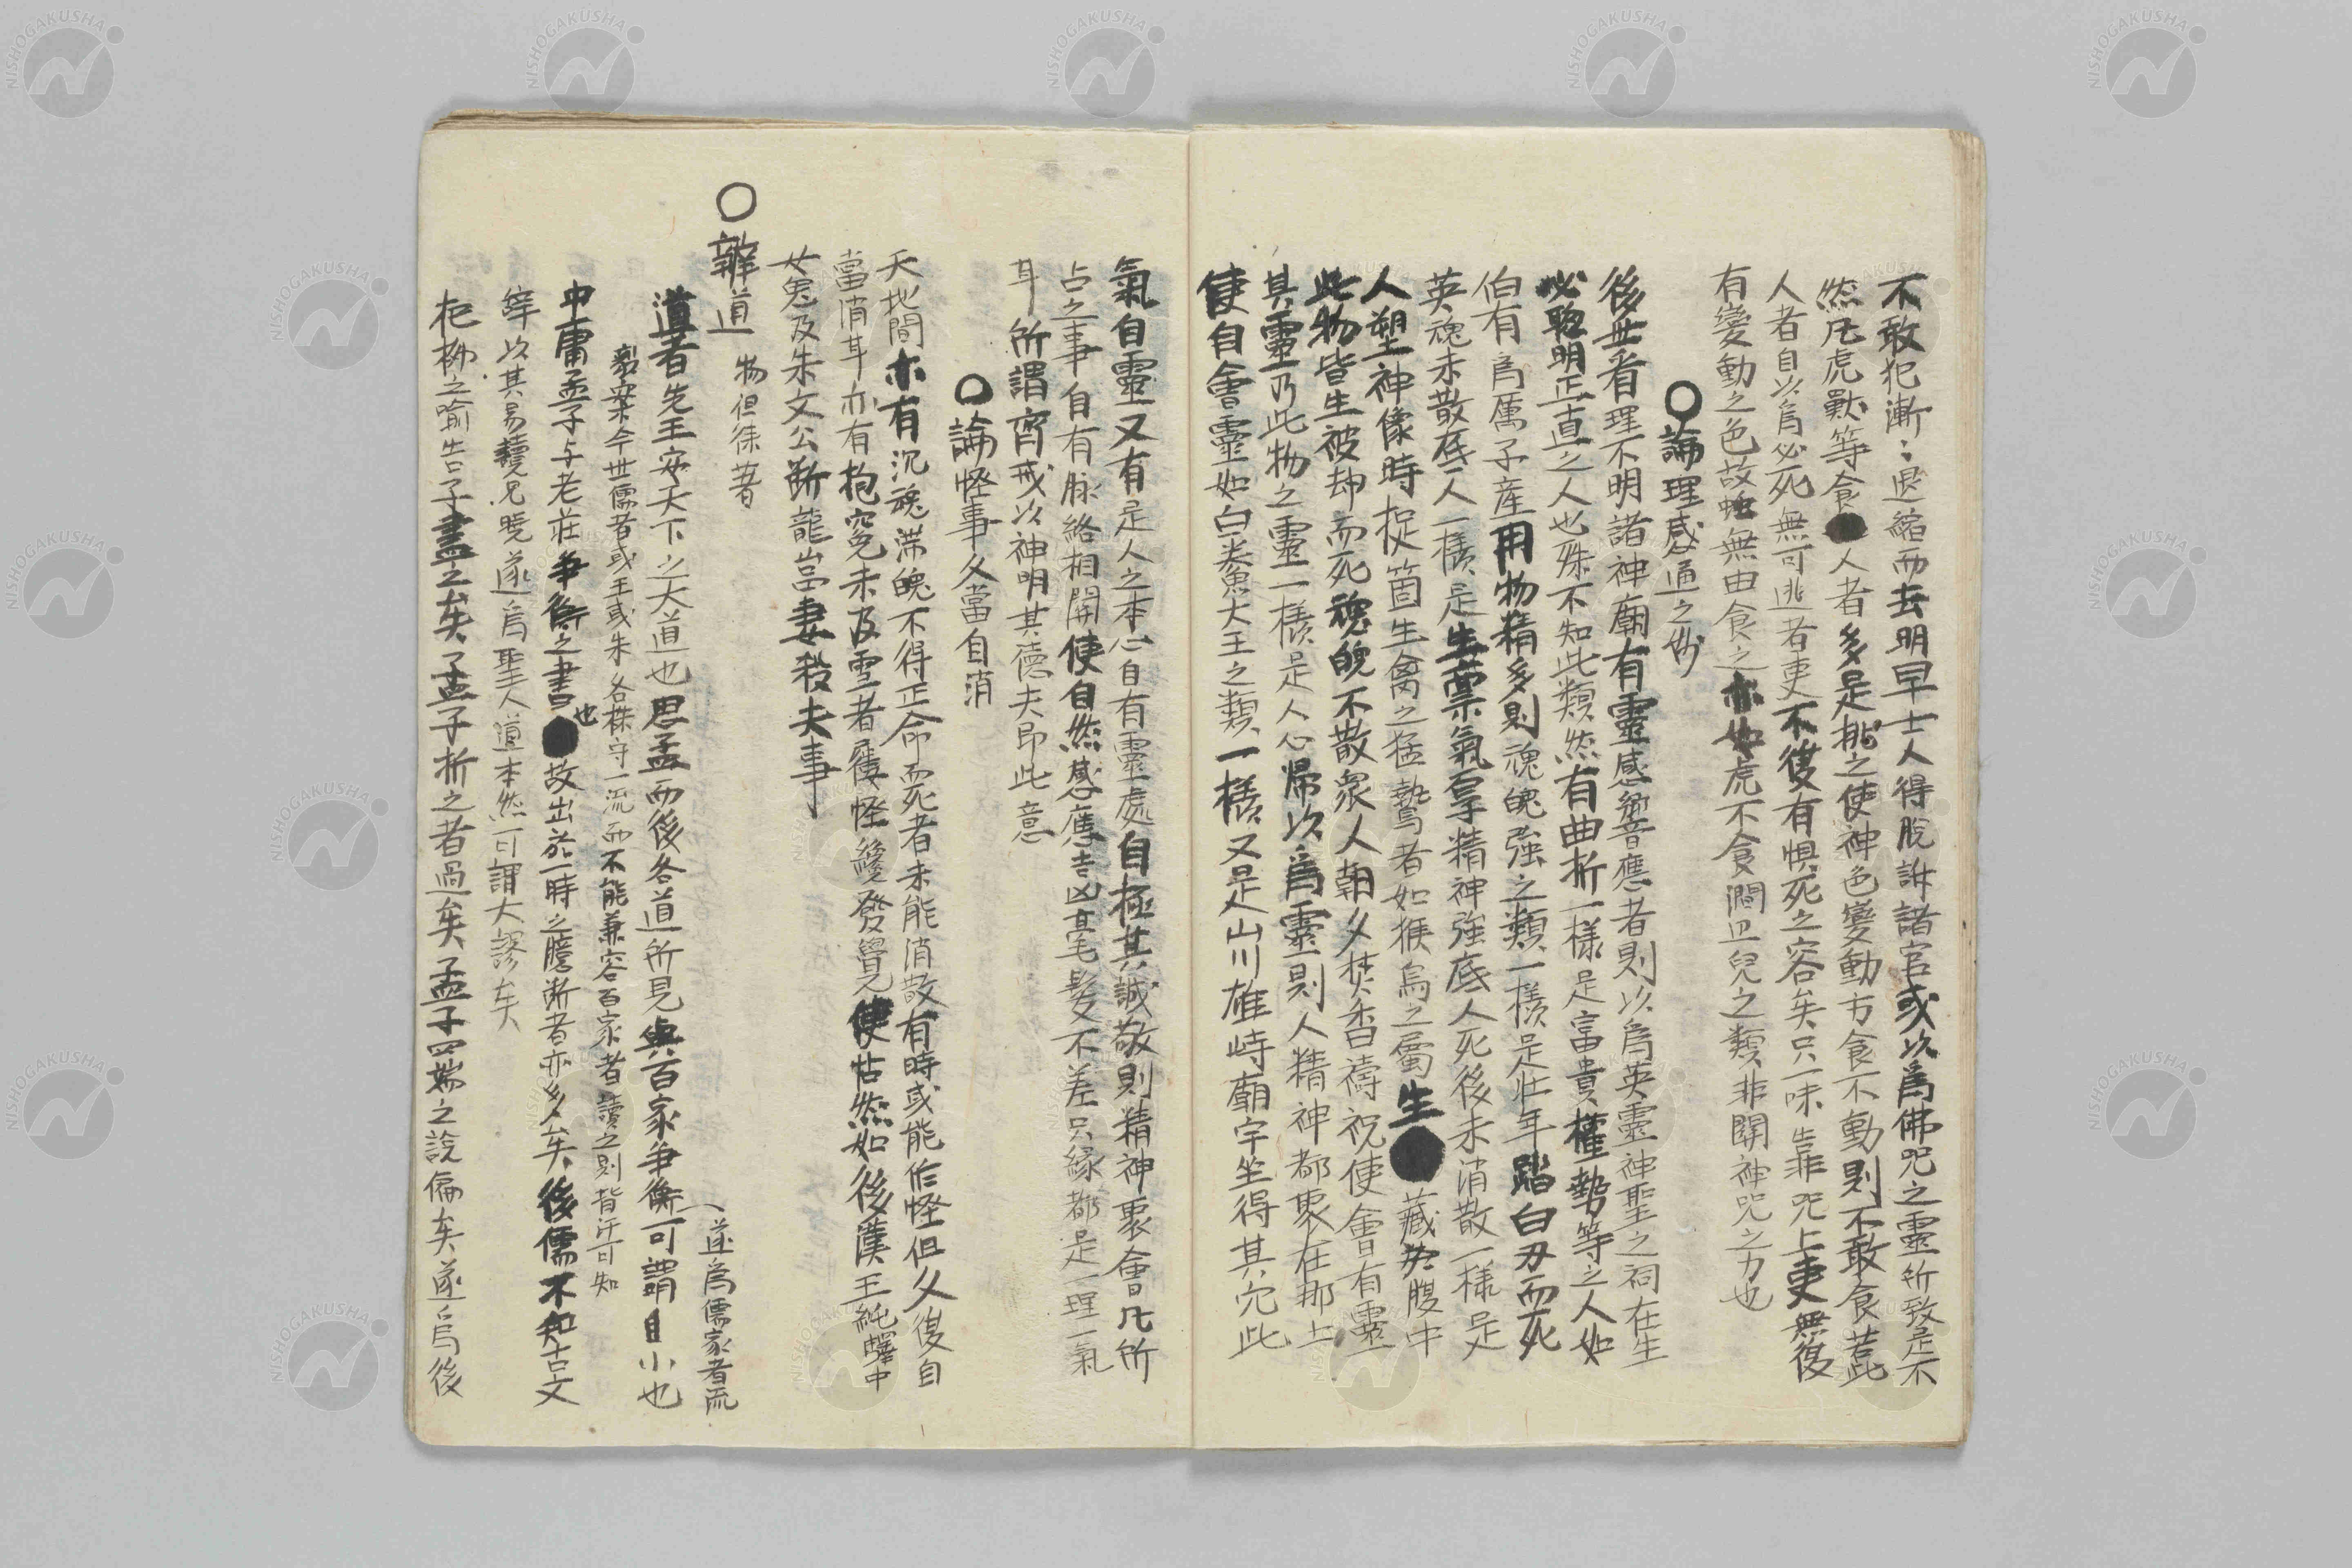 不敢犯漸〻退縮而去明早士人得脫訴諸官或以爲佛咒之靈所致是不
然凡虎獸等食人者多是挑之使神色變動方食不動則不敢食若此
人者自以爲必死無可逃者更不復有惧死之容矣只一味靠咒上更無復
有變動之色故虎無由食之亦如虎不食澗卫兒之類非關神咒之力也
○論理感通之妙
後世看理不明諸神廟有靈感響應者則以爲英靈神聖之祠在生
必聡明正直之人也殊不知此類然有曲折一樣是富貴權勢等之人如
伯有爲厲子產用物精多則魂魄強之類一樣是壮年蹈白刃而死
英魂未散底人一樣是生禀氣厚精神強底人死後未消散一樣是
人塑神像時捉箇生禽之猛鷙者如猴烏之屬生藏於腹中
此物皆生被却而死魂魄不散衆人朝夕焚香禱祝使會有靈
其靈乃此物之靈一樣是人心帰以爲靈則人精神都聚在那上
使自會靈如白鯗魚大王之類一樣又是山川雄峙廟宇坐得其穴此
氣自靈又有是人之本心自有靈處自極其誠敬則精神聚會凡所
占之事自有脉絡相關使自然感應吉凶毫髮不差只緣都是一理一氣
耳所謂齊戒以神明其德夫即此意
○論怪事久當自消
天地間亦有沉魂滯魄不得正命而死者未能消散有時或能作怪但久後自
當消耳亦有抱寃未及雪者屢怪纔發覺便帖然如後漢王純驛中
女鬼及朱文公斷龍岩妻殺夫事
○辨道 物但徠著
道者先王安天下之大道也思孟而後各道所見與百家爭衡可謂自小也
遂爲儒家者流
案今世儒者或王或朱各株守一流而不能兼容百家者讀之則背汗可知
中庸孟子与老莊爭衡之書也故出於一時之臆斷者亦多矣後儒不知古文
字以其易讀見曉遂爲聖人道本然可謂大謬矣
杞柳之喻告子盡之矣孟子折之者過矣孟子四端之說偏矣遂爲後